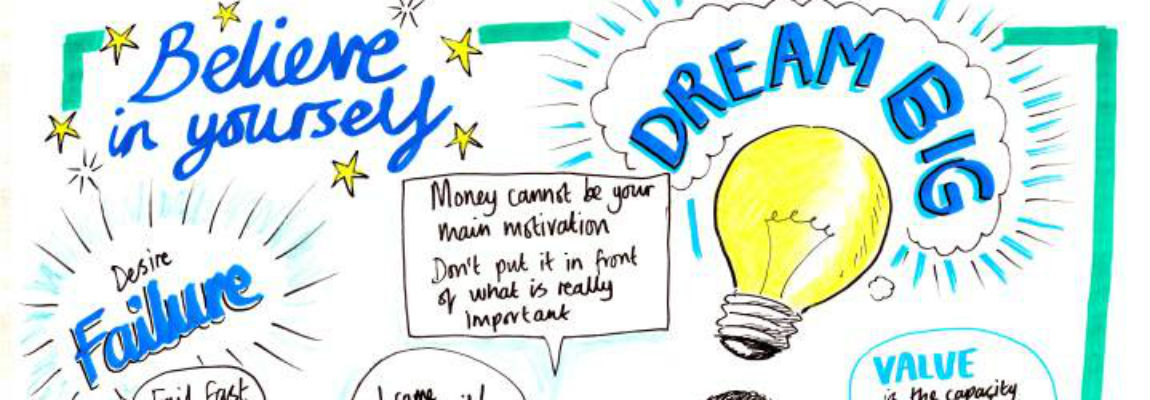 Believe
in yourself
DREAM BIG
Money cannot be your
main motivation
Don't put it in front
of what is really
important
Desire
Failure
Fail Fast
I came
VALUE
is the capacity